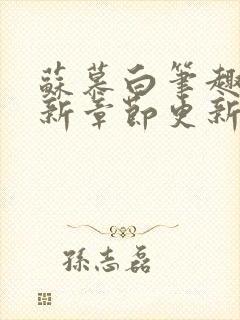 蘇慕白筆趣
新章節更新
孫志磊